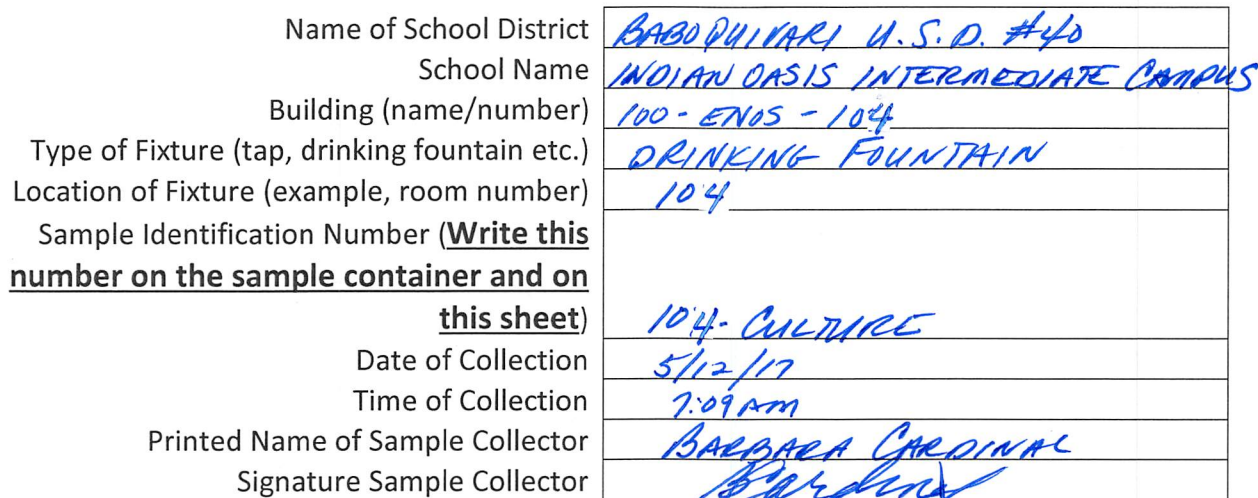 Name of School District BABOQUIVARI U.S.D. #40
School Name INDIAN OASIS INTERMEDIATE CAMPUS
Building (name/number) 100 - ENOS - 104
Type of Fixture (tap, drinking fountain etc.) DRINKING FOUNTAIN
Location of Fixture (example, room number) 104
Sample Identification Number (Write this
number on the sample container and on
this sheet) 104 - CULTURE
Date of Collection 5/12/17
Time of Collection 7:09 AM
Printed Name of Sample Collector BARBARA CARDINAL
Signature Sample Collector BCardinal